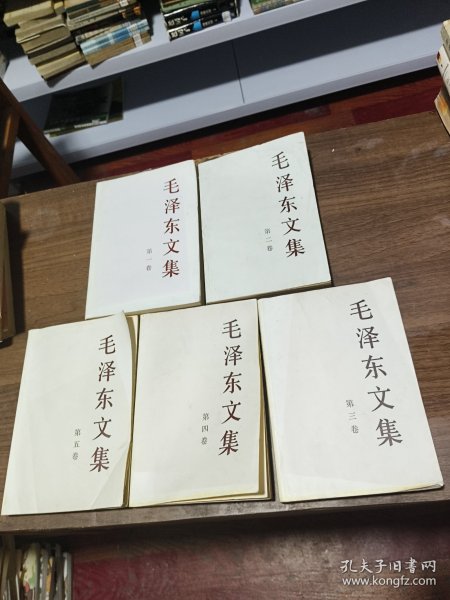 毛泽东文集
第一卷
毛泽东文集
第二卷
毛泽东文集
第五卷
毛泽东文集
第四卷
毛泽东文集
第三卷
孔夫子旧书网
www.kongfz.com